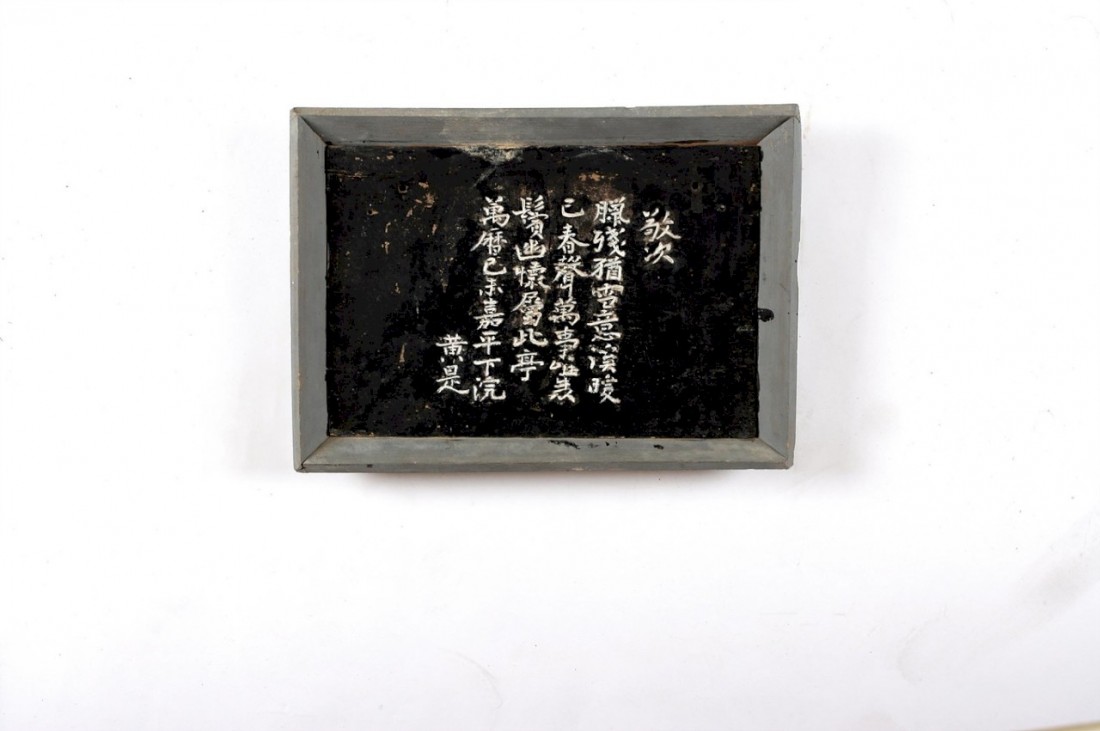 敬次
臘殘猶雪意溪暖
已春聲萬事姑衰
鬢幽懷屬此亭
萬曆己未嘉平下浣
黃是